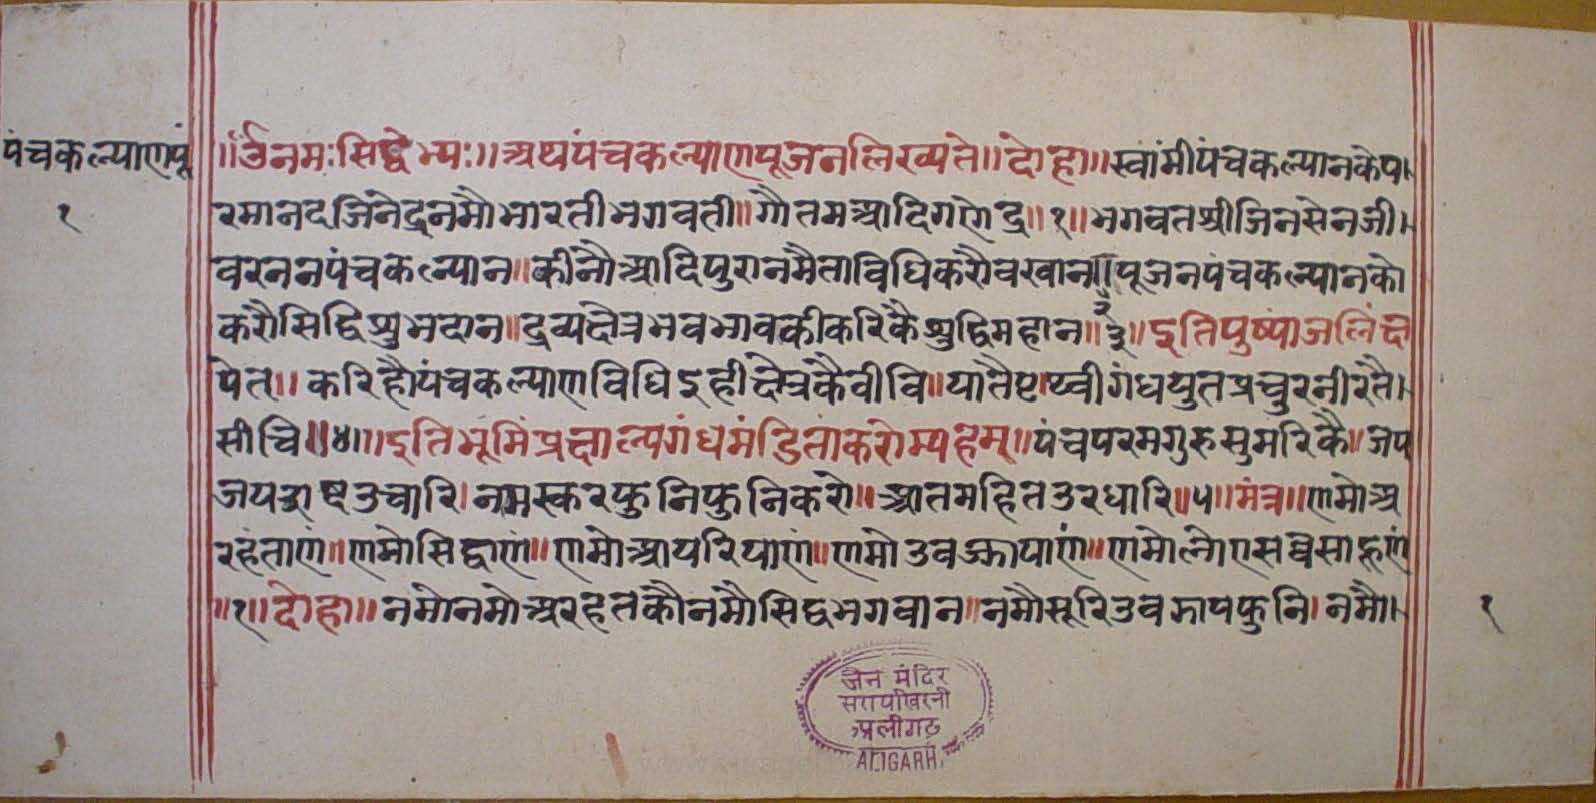 पंचकल्याणपू
१
॥ॐनमःसिद्धेभ्यः॥अथपंचकल्याणपूजनलिख्यते॥दोहा॥स्वांमीपंचकल्यानकेप।
रमानदजिनेद्रनमौभारतीभगवती॥गौतमआदिगणेद्र॥१॥भगवतश्रीजिनसेनजी।
वरननपंचकल्यान॥कीनौआदिपुरानमैताविधिकरौवखान॥२॥पूजनपंचकल्यानको
करौसिद्धिशुभदान॥द्रव्यक्षेत्रभवभावकीकरिकैशुद्धिमहान॥३॥इतिपुष्पांजलिंक्षे
पेत्॥करिहौपंचकल्याणविधिइहीक्षेत्रकैवीचि॥यातैपृथ्वीगंधयुतप्रचुरनीरतै।
सीचि॥४॥इतिभूमिंप्रक्षाल्यगंधमंडितांकरोम्यहम्॥पंचपरमगुरुसुमरिकै॥जप
जयउचारि।नमस्करफुनिफुनिकरो॥आतमहितउरधारि॥५॥मंत्र॥णमोअ
रहंताणं॥णमोसिद्धाणं॥णमोआयरियाणं॥णमोउवज्झायाणं॥णमोलोएसव्वेसाहूणं
॥१॥दोहा॥नमोनमोअरहतकौनमौसिद्धभगवान॥नमौसूरिउवझायफुनि।नमौ।
१
जैन मंदिर
अलीगढ़
ALIGARH.